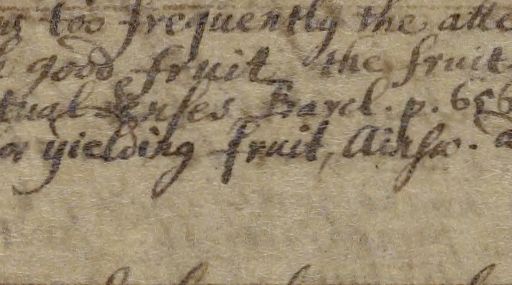 too frequently the atte
good fruit the fruit
tual Senses Barcl. p. 656
or yielding fruit, Ainsw. a